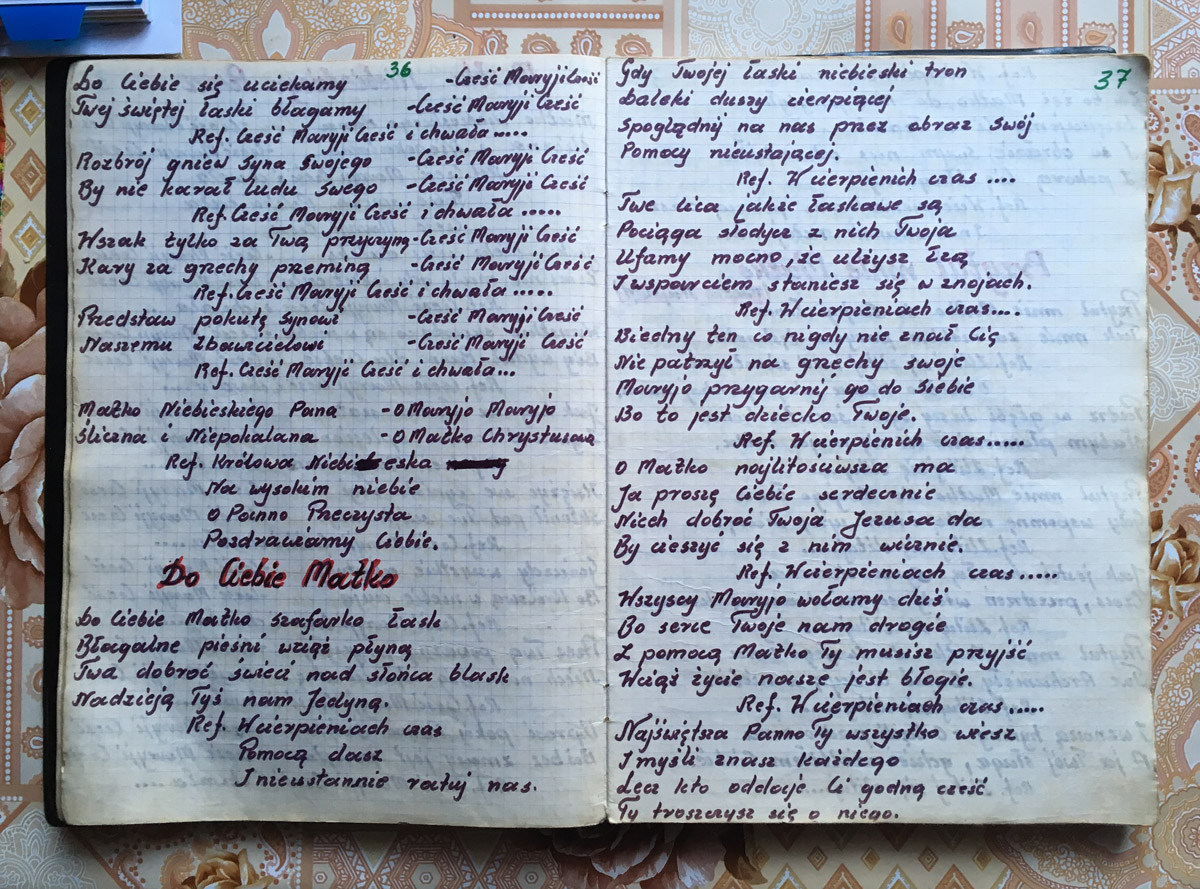 36
Do Ciebie się uciekamy -Cześć Maryji Cześć
Twej świętej łaski błagamy -Cześć Maryji Cześć
Ref. Cześć Maryji Cześć i chwała.....
Rozbrój gniew Syna Swojego -Cześć Maryji Cześć
By nie karał ludu swego -Cześć Maryji Cześć
Ref. Cześć Maryji Cześć i chwała.....
Wszak tylko za Twą przyczyną -Cześć Maryji Cześć
Kary za grzechy przeminą -Cześć Maryji Cześć
Ref. Cześć Maryji Cześć i chwała.....
Przedstaw pokutę Synowi -Cześć Maryji Cześć
Naszemu Zbawicielowi -Cześć Maryji Cześć
Ref. Cześć Maryji Cześć i chwała...
Matko Niebieskiego Pana -O Maryjo Maryjo
Śliczna i Niepokalana -O Matko Chrystusowa
Ref. Królowa Niebieska
Na wysokim niebie
O Panno Przeczysta
Pozdrawiamy Ciebie.
Do Ciebie Matko
Do Ciebie Matko szafarko łask
Błagalne pieśni wciąż płyną
Twa dobroć świeci nad słońca blask
Nadzieją Tyś nam Jedyną.
Ref. W cierpieniach czas
Pomocą dasz
I nieustannie ratuj nas.
37
Gdy Twojej łaski niebieski tron
Daleki duszy cierpiącej
Spoglądnij na nas przez obraz Swój
Pomocy nieustającej.
Ref. W cierpienich czas ....
Twe lica jakże łaskawe są
Pociąga słodycz z nich Twoja
Ufamy mocno, że ulżysz łzą
I wsparciem staniesz się w znojach.
Ref. W cierpieniach czas....
Biedny ten co nigdy nie znał Cię
Nie patrzył na grzechy swoje
Maryjo przygarnij go do Siebie
Bo to jest dziecko Twoje.
Ref. W cierpienich czas.....
O Matko najlitościwsza ma
Ja proszę Ciebie serdecznie
Niech dobroć Twoja Jezusa da
By cieszyć się z nim wiecznie.
Ref. W cierpieniach czas.....
Wszyscy Maryjo wołamy dziś
Bo serce Twoje nam drogie
Z pomocą Matko Ty musisz przyjść
Wciąż życie nasze jest błogie.
Ref. W cierpieniach czas.....
Najświętsza Panno Ty wszystko wiesz
I myśli znasz każdego
Lecz kto oddaje Ci godną cześć
Ty troszczysz się o niego.